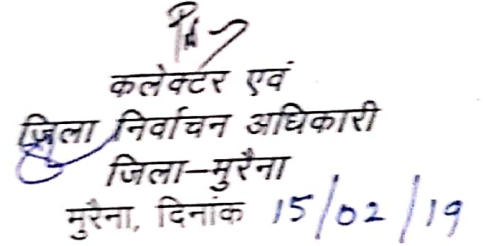 कलेक्टर एवं
जिला निर्वाचन अधिकारी
जिला-मुरैना
मुरैना, दिनांक 15/02/19